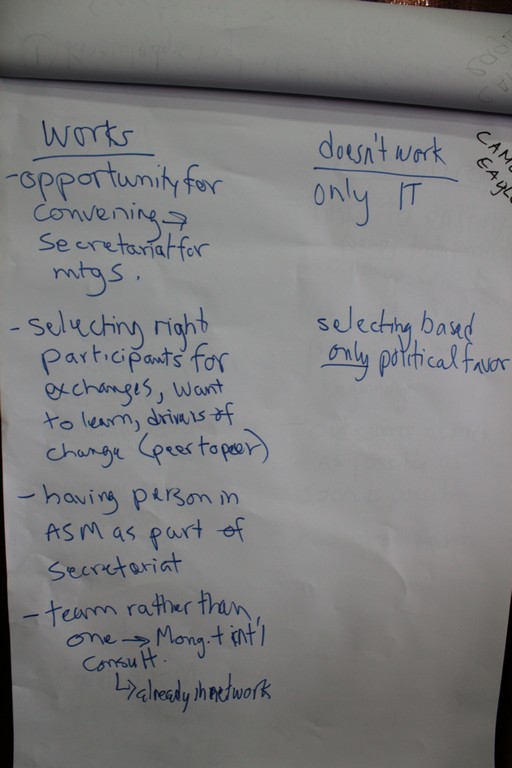 works
- opportunity for
convening →
secretariat for
mtgs.
- selecting right
participants for
exchanges, want
to learn, drivers of
change (peer to peer)
- having person in
ASM as part of
secretariat
- team rather than
one → Mong. + int'l
consult.
↳ already in network
doesn't work
only IT
selecting based
only political favor